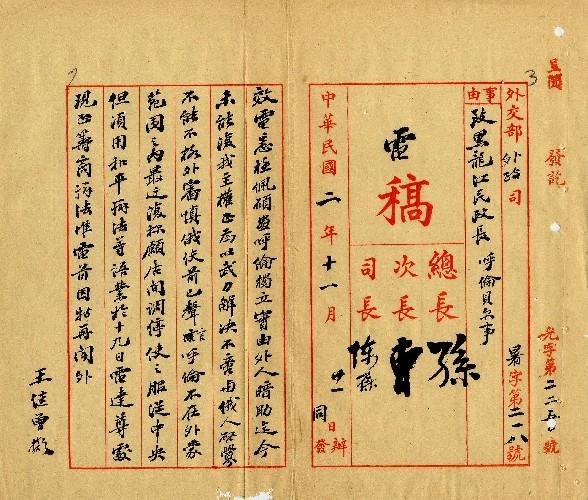 3
呈閱
發訖
光字第二二五〇號
外交部 外政司
暑字第二一八號
事由
致黑龍江民政長 呼倫貝尔事
電
稿
總長 孫
次長 曹
司長 陳
中華民國二年十一月廿一日
同 辦發
效電悉極佩碩畫呼倫獨立實由外人暗助迄今
未能復我主權正為以武力解決不啻與俄人啟釁
不能不格外審慎俄使前已聲言呼倫不在外蒙
範圍之內最近復称願居間調停使之服從中央
但須用和平辦法等語業於十九日電達尊處
現正籌商辦法惟電首因特再聞外
王佳曾擬